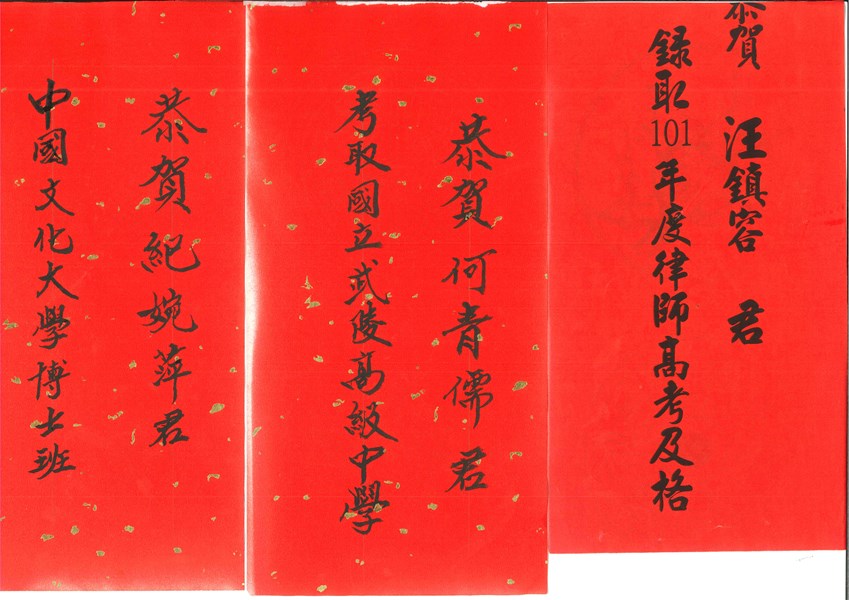 恭賀 汪鎮容 君
録取101年度律師高考及格
恭賀何青儒君
考取國立武陵高級中學
恭賀紀婉萍君
中國文化大學博士班